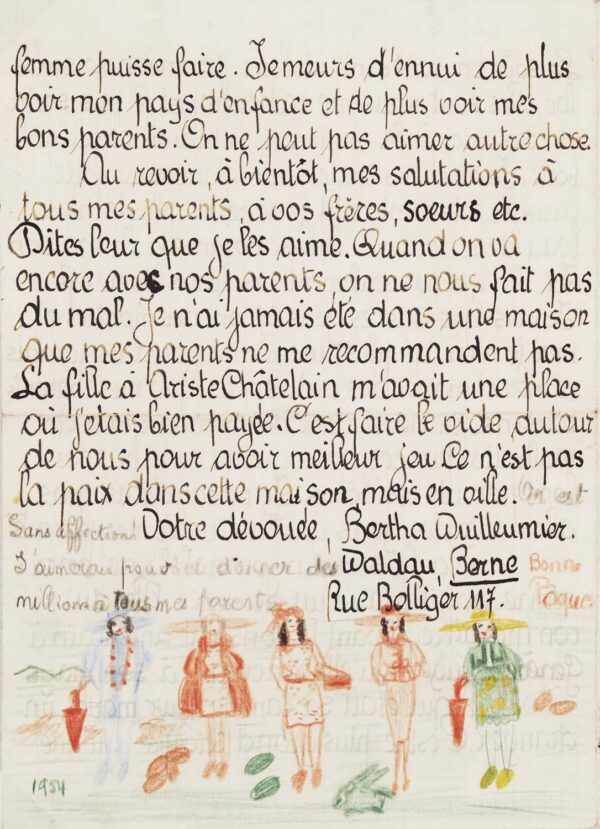 femme puisse faire. Je meurs d'ennui de plus
voir mon pays d'enfance et de plus voir mes
bons parents. On ne peut pas aimer autre chose.
Au revoir, à bientôt, mes salutations à
tous mes parents, à vos frères, soeurs etc.
Dites leur que je les aime. Quand on va
encore avec nos parents, on ne nous fait pas
du mal. Je n'ai jamais été dans une maison
que mes parents ne me recommandent pas.
La fille à Ariste Châtelain m'avait une place
où j'étais bien payée. C'est faire le vide autour
de nous pour avoir meilleur jeu Ce n'est pas
la paix dans cette maison, mais en ville. On est
Sans affection! Votre dévouée, Bertha Wuilleumier.
J'aimerais pour donner des Waldau, Berne Bonne
millions à tous mes parents. Rue Bolliger 117. Pâques.
1954